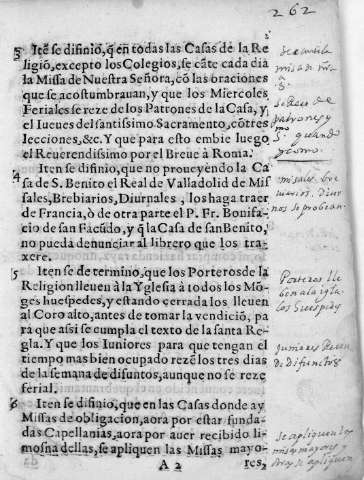 262
3 Itẽ se difinio, q̃ en todas las Casas de la Re
ligiõ, excepto los Colegios, se cãte cada dia
la Missa de Nuestra Señora, cõ las oraciones
que se acostumbrauan, y que los Miercoles
Feriales se reze de los Patrones de la Casa, y
el Iueues del santissimo Sacramento, cõ tres
lecciones, &c. Y que para esto embie luego
el Reuerendissimo por el Breue à Roma.
4 Iten se difinio, que no proueyendo la Ca
sa de S. Benito el Real de Valladolid de Mis
sales, Brebiarios, Diurnales, los haga traer
de Francia, ò de otra parte el P. Fr. Bonifa-
cio de san Facũdo, y q̃ la Casa de san Benito,
no pueda denunciar al librero que los tra-
xere.
5 Iten se de termino, que los Porteros de la
Religion lleuen à la Yglesia à todos los Mõ-
ges huespedes, y estando cerrada los lleuen
al Coro alto, antes de tomar la vendiciõ, pa
ra que assi se cumpla el texto de la santa Re-
gla. Y que los Iuniores para que tengan el
tiempo mas bien ocupado rezẽ los tres dias
de la semana de difuntos, aunque no se reze
ferial.
6 Iten se difinio, que en las Casas donde ay
Missas de obligacion, aora por estar funda-
das Capellanias, aora por auer recibido li-
mosna dellas, se apliquen las Missas mayo-
A 2 res,
se cante la
misa de nra
S.
se Rece de
patrones y
misales, bre
uiarios, Diur
Porteros lle
Juniores Recen
de difunctos
se apliquen las